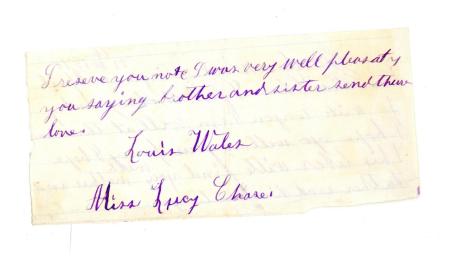 I reseve you note I was very well pleas at y
you saying brother and sister send there
love.
Louis Wales
Miss Lucy Chase.